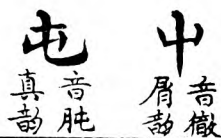 屮
音徹
屑韵
屯
音肫
真韵